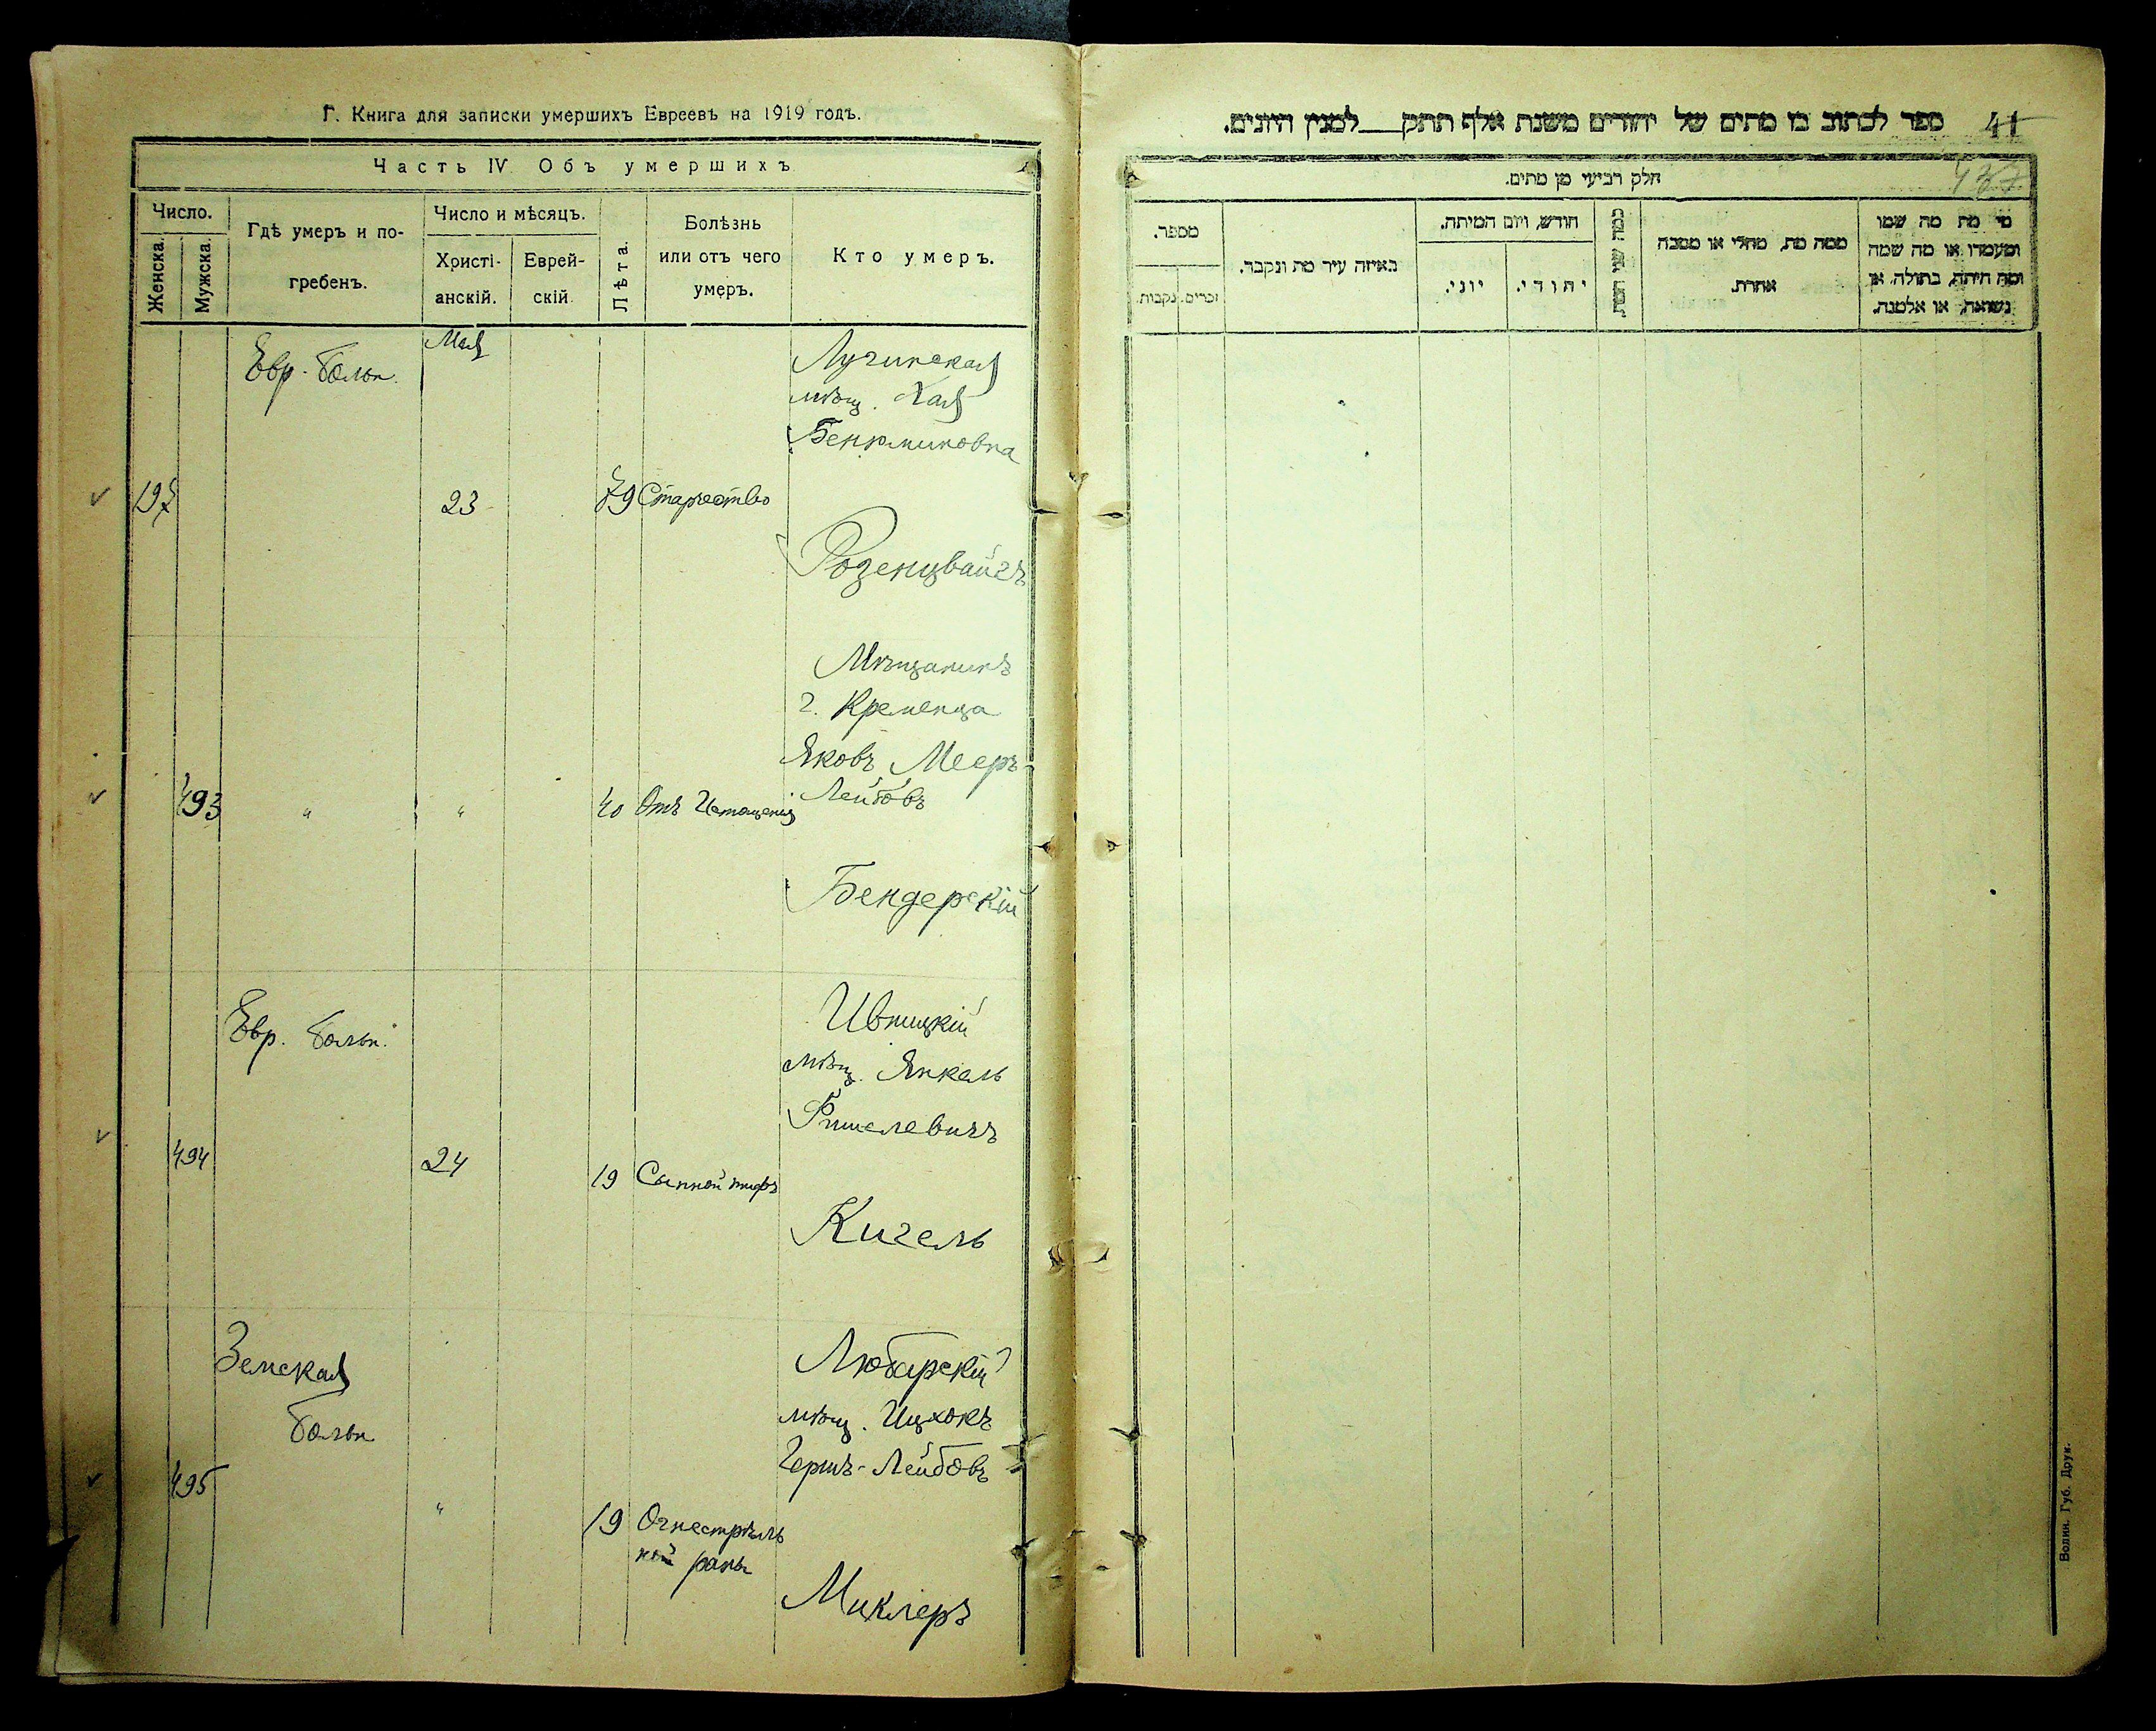 Г. Книга для записки умершихъ Евреевъ на 1919 годъ.
Часть IV Объ умершихъ
Число.
Женска.
Мужска.
Гдѣ умеръ и по-
гребенъ.
Число и мѣсяцъ.
Христі-
анскій.
Еврей-
скій.
Лѣта.
Болѣзнь
или отъ чего
умеръ.
Кто умеръ.
Мая
Евр. больн.
Лучинская
мѣщ. Хая
Бенюминовна
197
23
79
Старчество
Розенцвайгъ
Мѣщанинъ
г. Кременца
Яковъ Мееръ-
Лейбовъ
493
"
"
40
Отъ Истощенія
Бендерскій
Евр. больн.
Ивницкій
мѣщ. Янкель
Фишелевичъ
494
24
19
Сыпной тифъ
Кигель
Земская
больн
Любарскій
мѣщ. Ицхокъ
Гершъ-Лейбовъ
495
"
19
Огнестрѣль
ной раны
Миклеръ
ספר לכתוב בו מתים של יהודים משנת אלף תתק___למנין היונים.
41
חלק רביעי מן מתים.
מספר.
זכרים.
נקבות.
באיזה עיר מת ונקבר.
חודש, ויום המיתה.
יוני.
יהודי.
כמה שני המת
ממה מת, מחלי או מסבה
אחרת.
מי מת מה שמו
ומעמדו או מה שמה
ומה היתה, בתולה, או
נשואה, או אלמנה.
Волин. Губ. Друк.